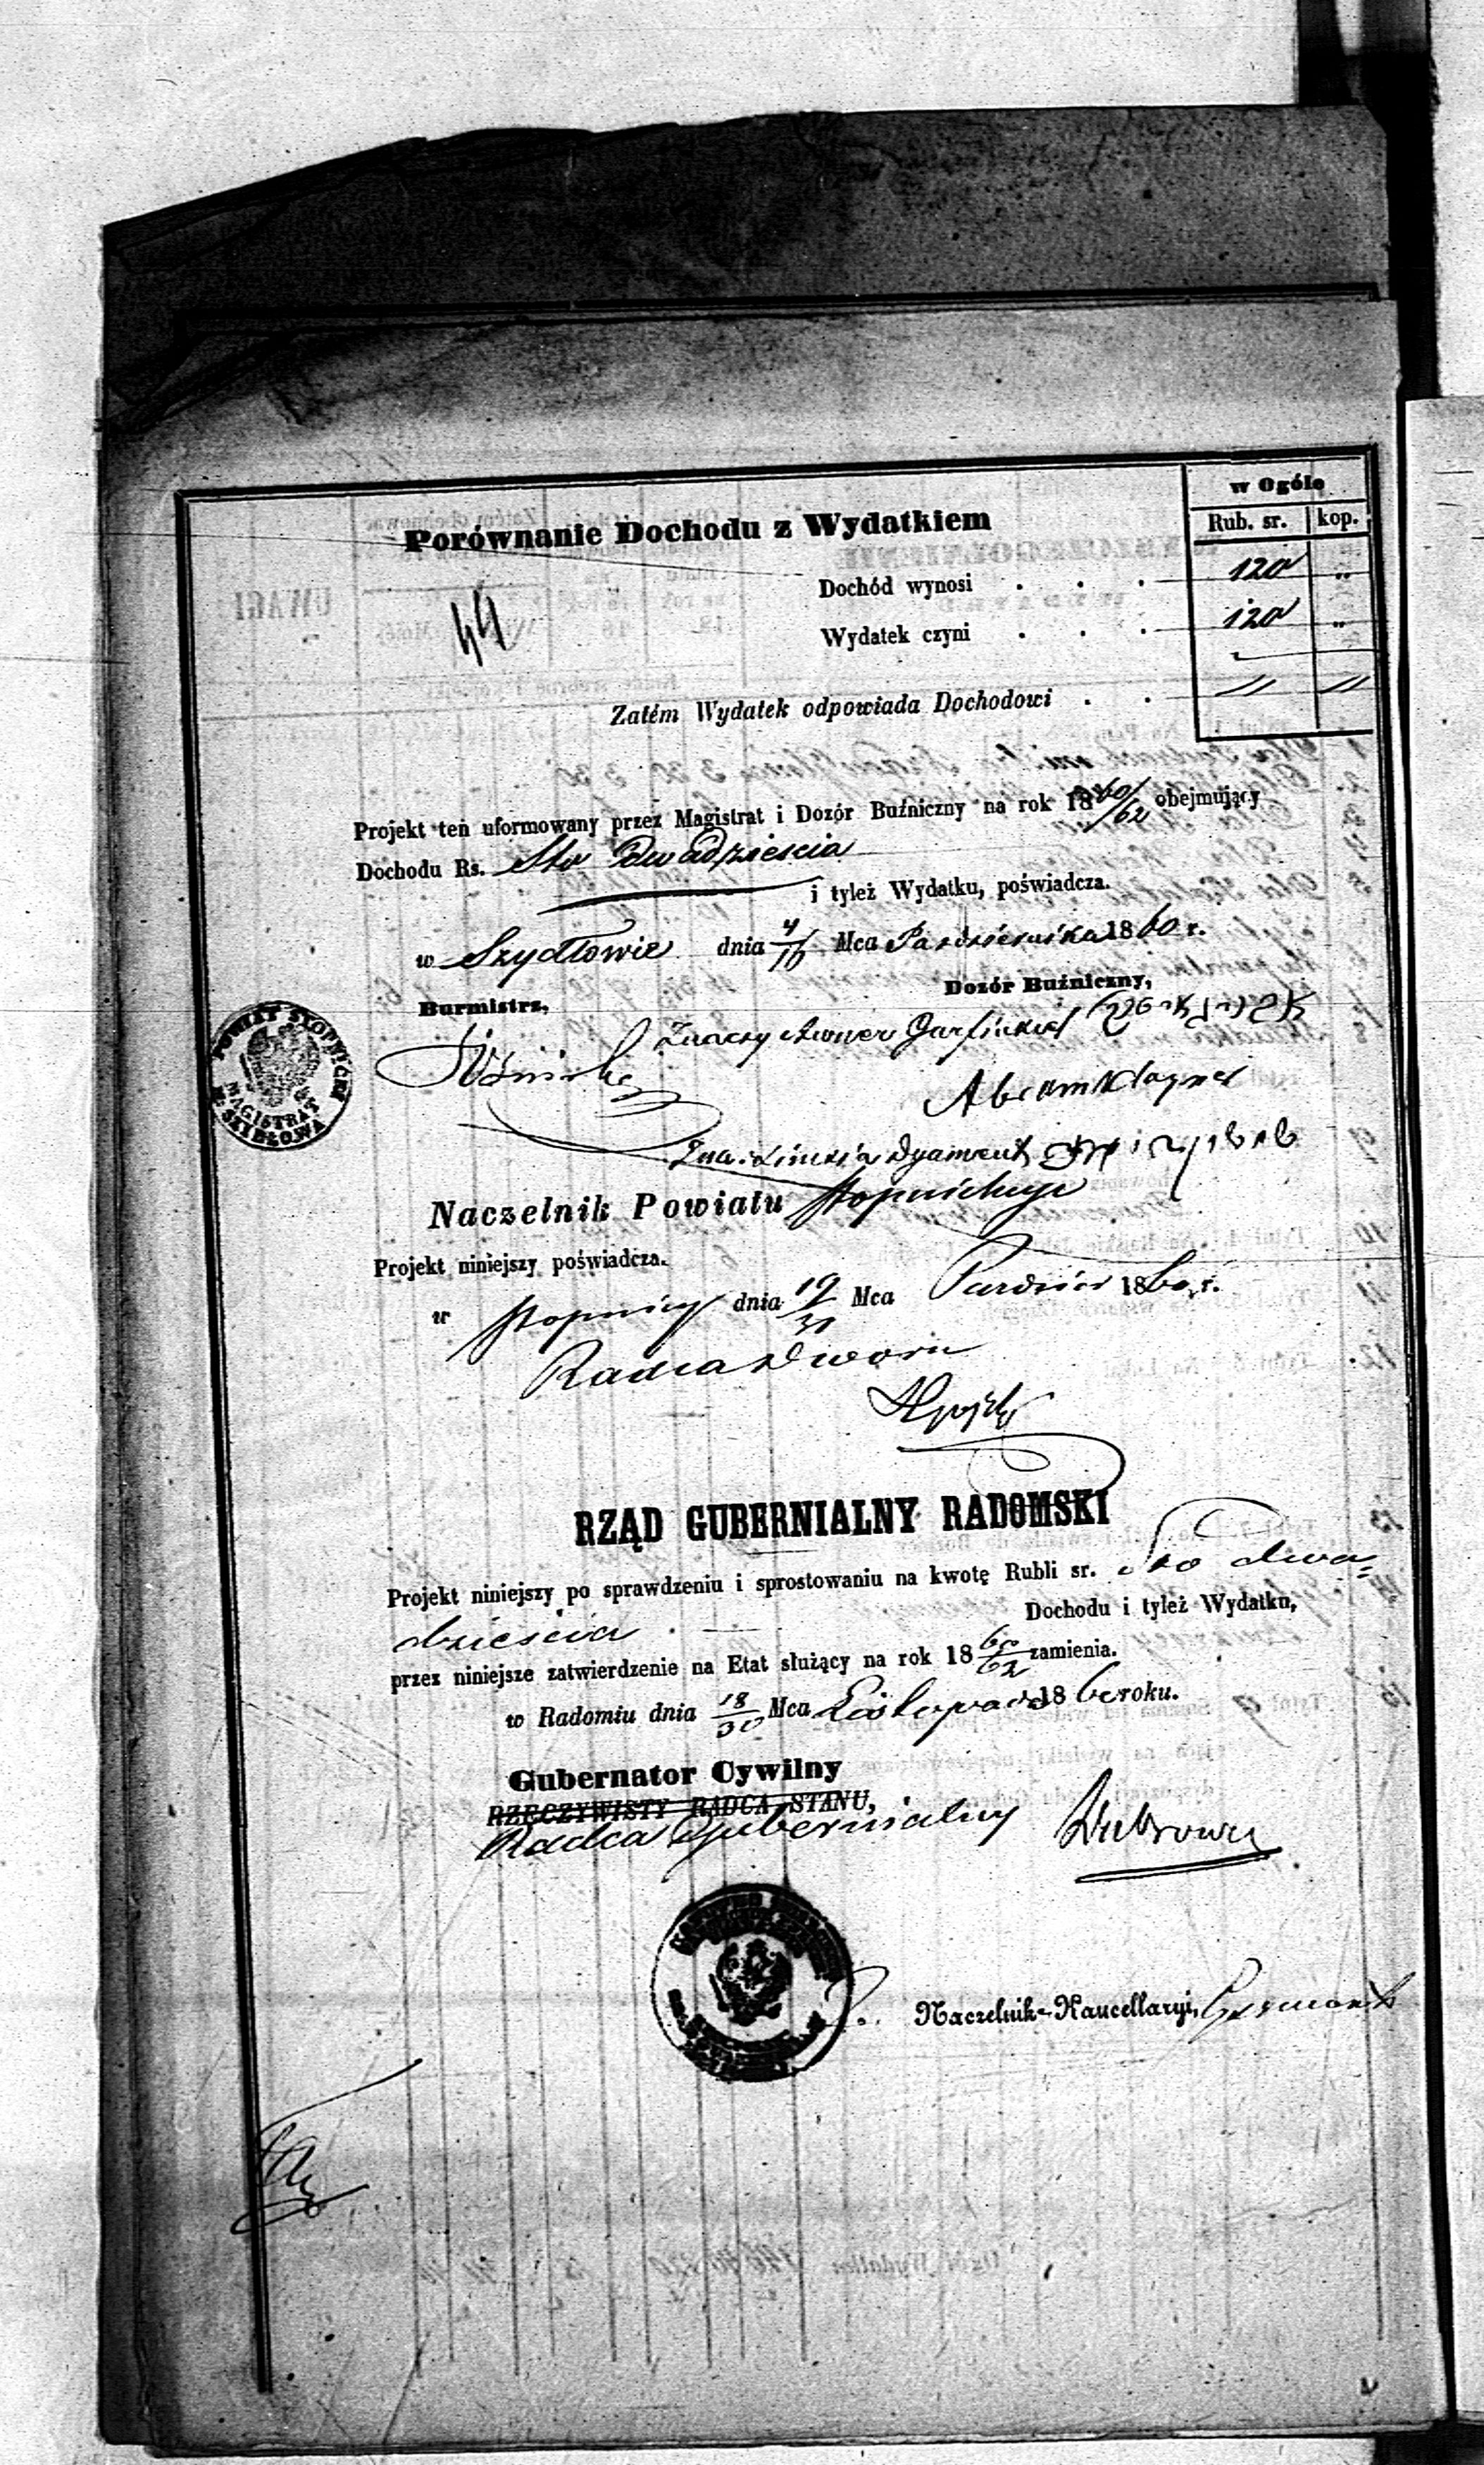 w Ogóle
Porównanie Dochodu z Wydatkiem
Rub. sr. kop.
Dochód wynosi . . . 120 "
44
Wydatek czyni . . . 120 "
Zatém Wydatek odpowiada Dochodowi . . " "
Projekt ten uformowany przez Magistrat i Dozór Buźniczny na rok 1860/62 obejmujący
Dochodu Rs. Sto Dwadzieścia
i tyleż Wydatku, poświadcza.
w Szydłowie dnia 4/16 Mca Października 1860 r.
Burmistrz,
Dozór Buźniczny,
POWIAT STOPNICKI
MAGISTRAT
M. SZYDŁOWA
Znaczy Garfinkiel
Abram
Dyament
Naczelnik Powiatu Stopnickiego
Projekt niniejszy poświadcza.
w Stopnicy dnia 19/31 Mca Paździer 1860 r.
Radca Dworu
RZĄD GUBERNIALNY RADOMSKI
Projekt niniejszy po sprawdzeniu i sprostowaniu na kwotę Rubli sr. Sto dwa=
dzieścia Dochodu i tyleż Wydatku,
przez niniejsze zatwierdzenie na Etat służący na rok 1860/62 zamienia.
w Radomiu dnia 18/30 Mca Listopada 1860 roku.
Gubernator Cywilny
RZECZYWISTY RADCA STANU,
Radca Gubernialny
Naczelnik Kancellaryi,